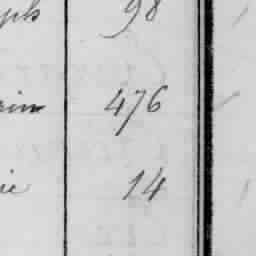 yph 98
rin 476
ie 14